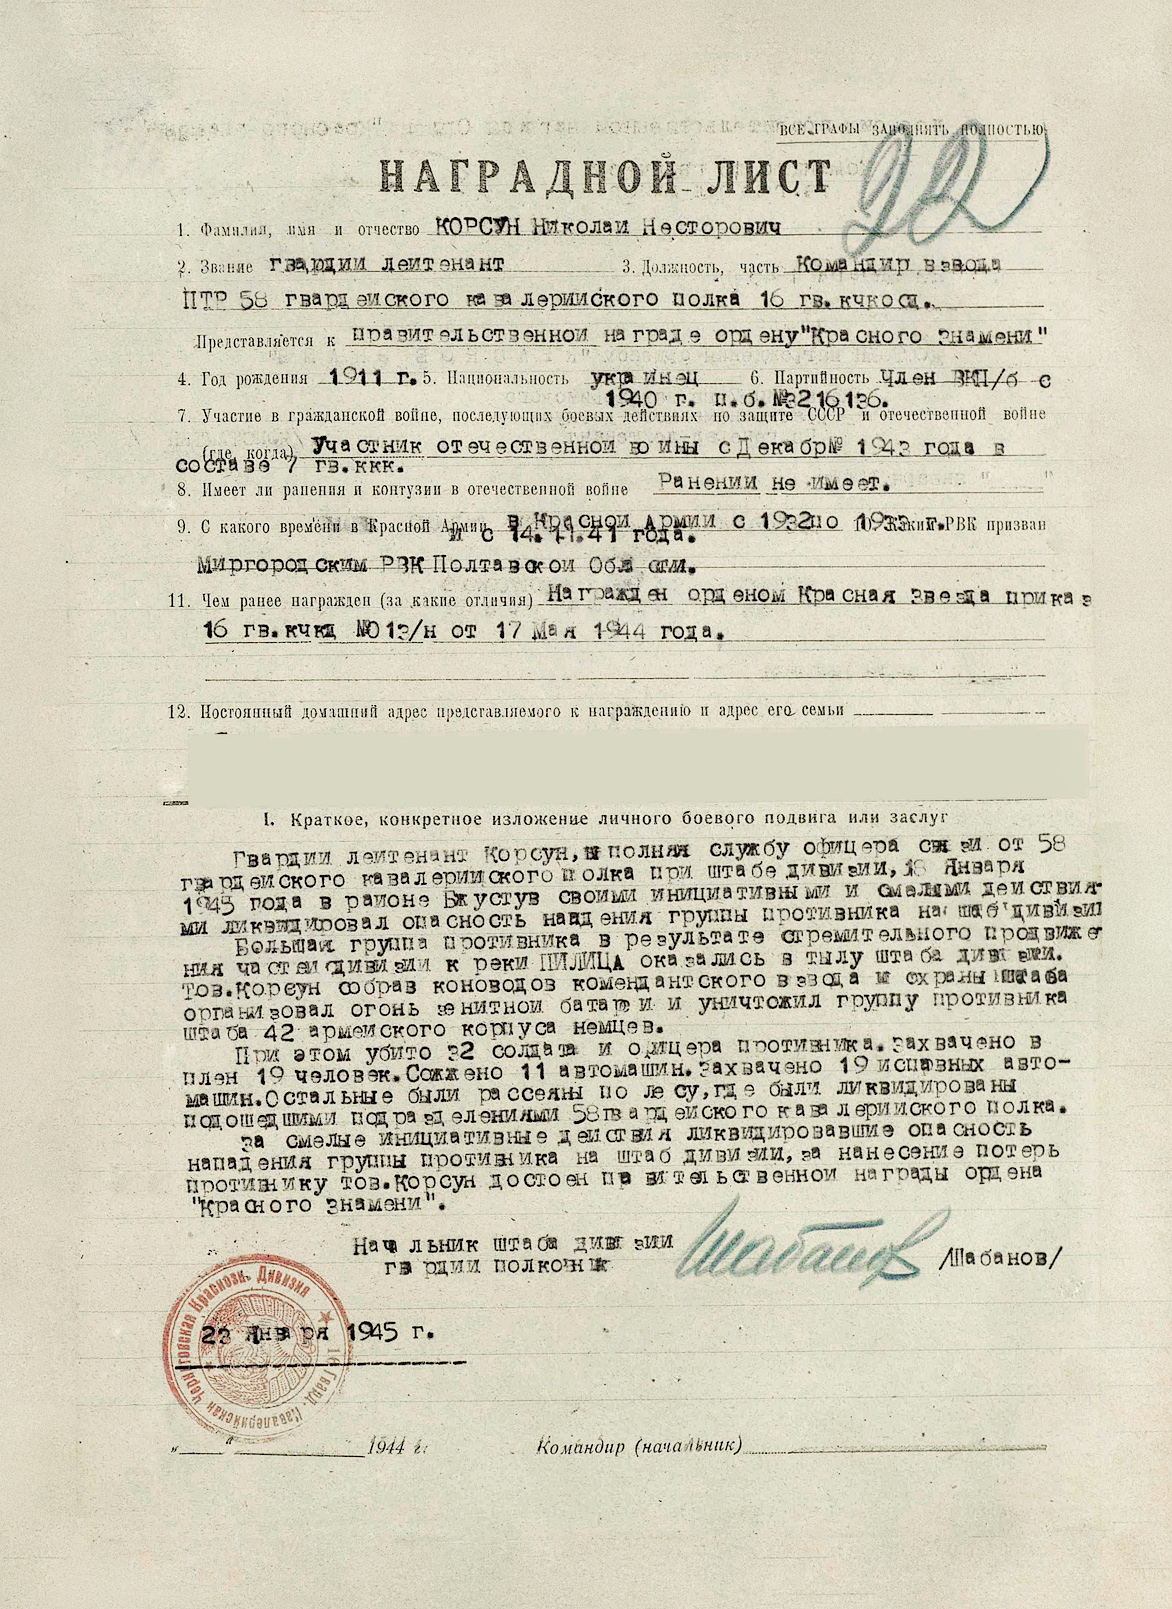 ВСЕ ГРАФЫ ЗАПОЛНЯТЬ ПОЛНОСТЬЮ
22
НАГРАДНОЙ ЛИСТ
1. Фамилия, имя и отчество КОРСУН Николаи Несторович
2. Звание гвардии леитенант 3. Должность, часть Командир взвода
ПТР 58 гвардеиского кавалерииского полка 16 гв.кчкосд.
Представляется к правительственнои награде ордену "Красного знамени"
4. Год рождения 1911 г. 5. Национальность украинец 6. Партийность Член ВКП/б с
1940 г. п.б.№3216136.
7. Участие в гражданской войне, последующих боевых действиях по защите СССР и отечественной войне
(где, когда) Участник отечественнои воины с Декабр№ 1943 года в
составе 7 гв.ккк.
8. Имеет ли ранения и контузии в отечественной войне Ранении не имеет.
9. С какого времени в Красной Армии в Краснои Армии с 1932по 1933 г. РВК призван
и с 14.11.41 года.
Миргородским РВК Полтавскои Области.
11. Чем ранее награжден (за какие отличия) Награжден орденом Красная звезда приказ
16 гв.кчкд №013/н от 17 Мая 1944 года.
12. Постоянный домашний адрес представляемого к награждению и адрес его семьи
I. Краткое, конкретное изложение личного боевого подвига или заслуг
Гвардии леитенант Корсун, исполняя службу офицера связи от 58
гвардеиского кавалериискогополка при штабе дивизии, 18 Января
1945 года в районе Бжустув своими инициативными и смелыми деиствия-
ми ликвидировал опасность наадения группы противника на штаб дивизии
Большая группа противника в результате стремительного продвиже-
ния частеи дивизии к реки ПИЛИЦА оказались в тылу штаба дивизии.
Тов.Корсун собрав коноводов комендантского взвода и охраны штаба
организовал огонь зенитнои батареи и уничтожил группу противника
штаба 42 армеиского корпуса немцев.
При этом убито 32 солдата и офицера противника. захвачено в
плен 19 человек. Сожжено 11 автомашин. захвачено 19 исправных авто-
машин. Остальные были рассеяны по лесу, где были ликвидированы
подошедшими подразделениями 58гвардеиского кавалериского полка.
за смелые инициативные деиствия ликвидировавшие опасность
нападения группы противника на штаб дивизии, за нанесение потерь
противнику тов.Корсун достоен правительственнои награды ордена
"Красного знамени".
Начальник штаба дивизии
гвардии полковник Шабанов /Шабанов/
16 Гвард. Кавалерийская Черниговская Краснозн. Дивизия
23 Января 1945 г.
„ “ 1944 г. Командир (начальник)